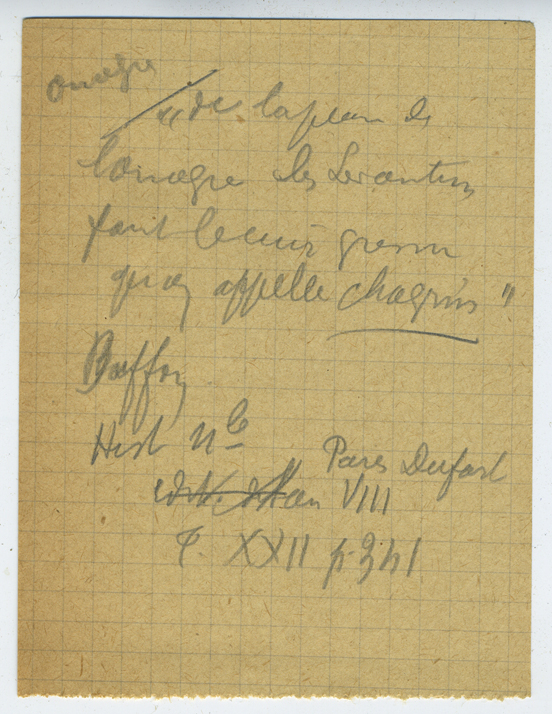 onagre
« de la peau de
l'onagre les Levantins
font le cuir grenu
qu'on appelle chagrin "
Buffon
Hist Nle
Paris Dufart
an VIII
T. XXII p. 341